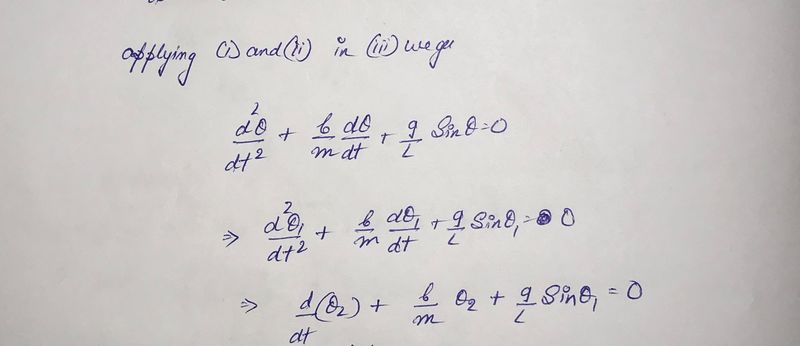 applying (i) and (ii) in (iii) we get
d²θ/dt² + b/m dθ/dt + g/L Sinθ = 0
⇒ d²θ₁/dt² + b/m dθ₁/dt + g/L Sinθ₁ = 0
⇒ d/dt (θ₂) + b/m θ₂ + g/L Sinθ₁ = 0